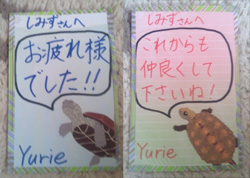 しみずさんへ
お疲れ様
でした!!
Yurie
しみずさんへ
これからも
仲良くして
下さいね!
Yurie